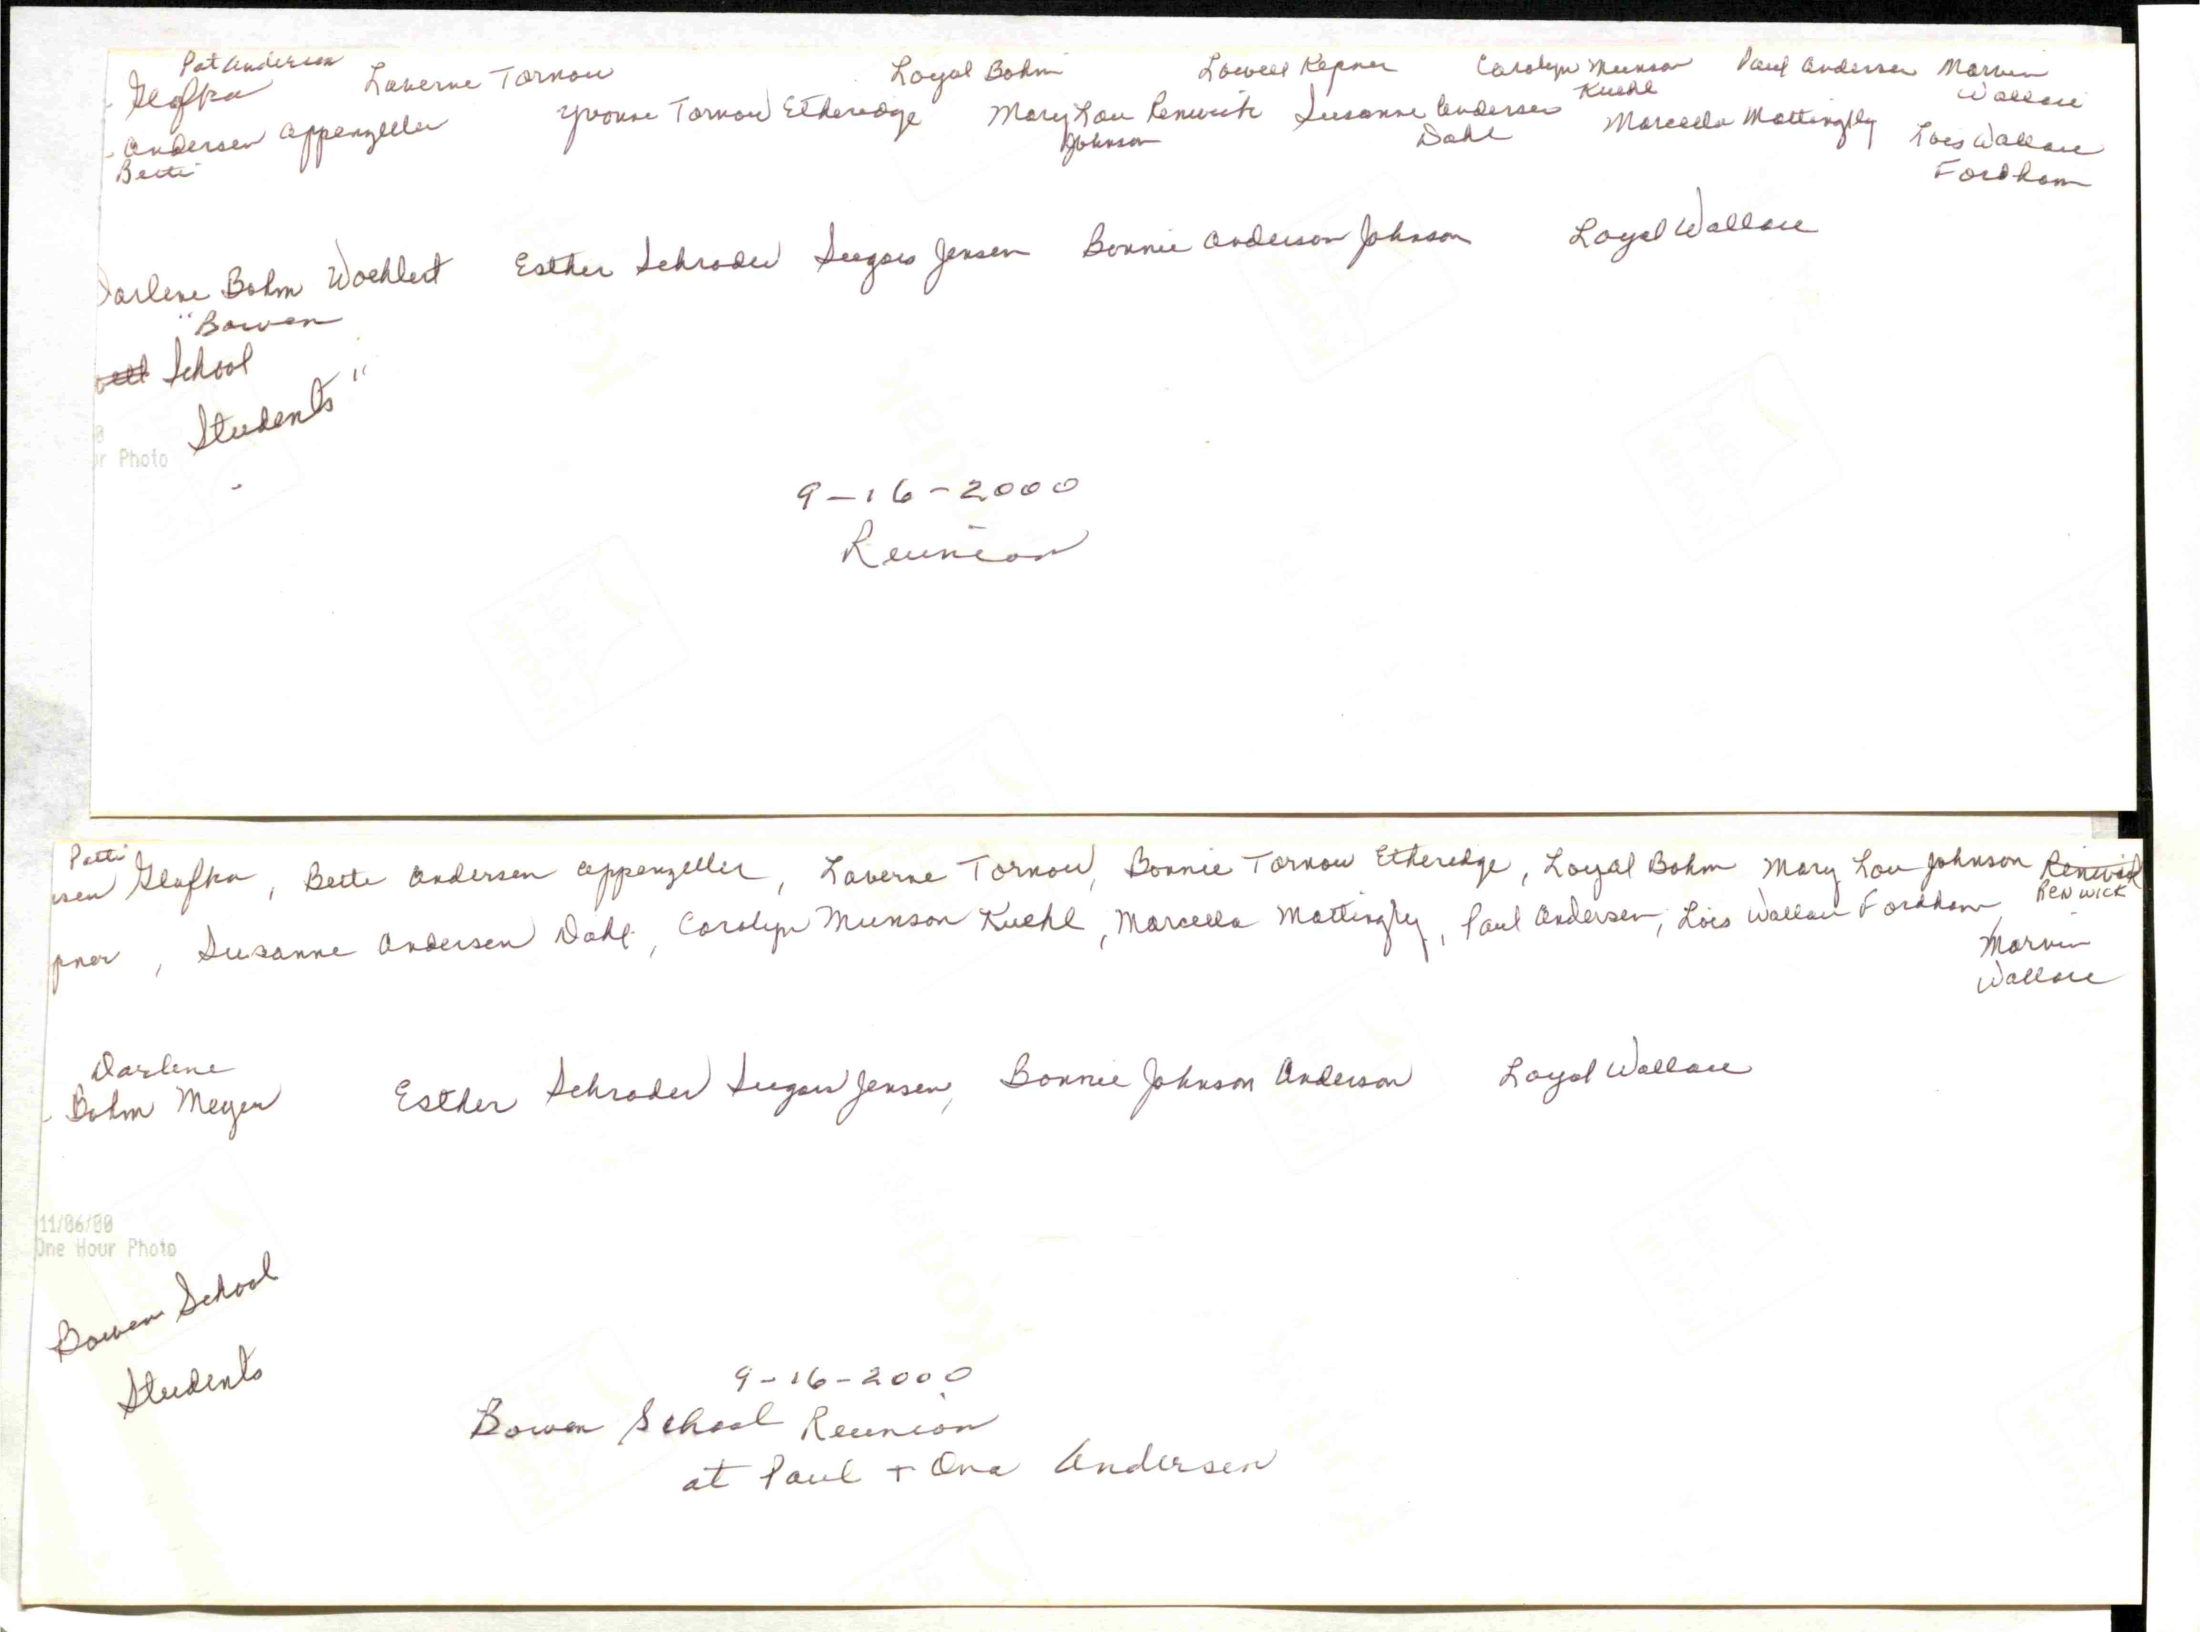 Pat Andersen
Glofka Laverne Tornow Loyal Bohm Lowell Kepner Carolyn Munson Paul Andersen Marvin
Kuehl Wallace
Andersen Appenzeller Yvonne Tornow Etheredge Mary Lou Renwick Susanne Andersen Marcella Mattingly Lois Wallace
Bette Johnson Dahl Fordham
Darlene Bohm Woehlert Esther Schroder Seegers Jensen Bonnie Anderson Johnson Loyal Wallace
"Bowen
School
Students"
r Photo
9-16-2000
Reunion
Patti
sen Glofka, Bette Andersen Appenzeller, Laverne Tornow, Bonnie Tornow Etheredge, Loyal Bohm Mary Lou Johnson Renwick
RENWICK
pner, Susanne Andersen Dahl, Carolyn Munson Kuehl, Marcella Mattingly, Paul Andersen, Lois Wallace Fordham,
Marvin
Wallace
Darlene
Bohm Meyer Esther Schroder Seegers Jensen, Bonnie Johnson Anderson Loyal Wallace
11/06/00
One Hour Photo
Bowen School
Students
9-16-2000
Bowen School Reunion
at Paul + Ona Andersen